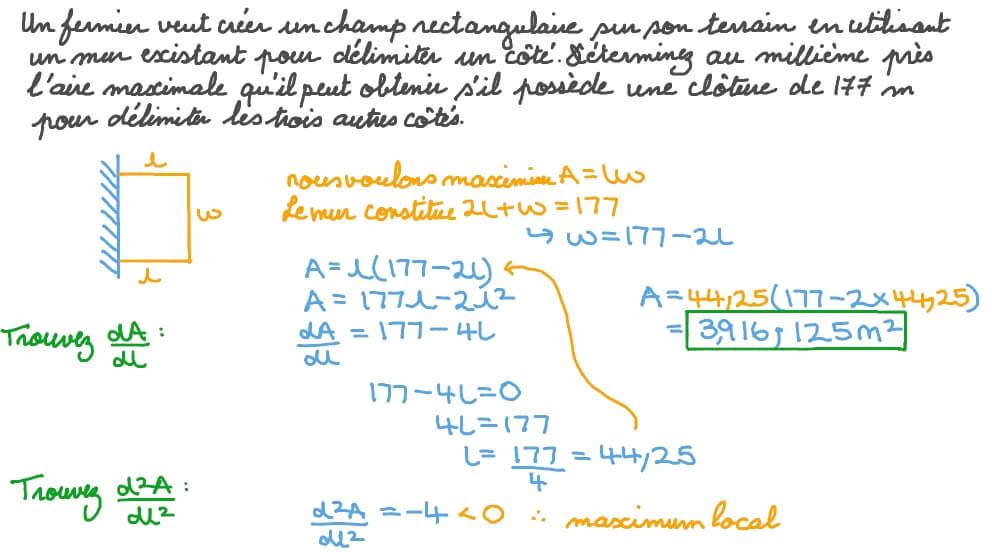 Un fermier veut créer un champ rectangulaire sur son terrain en utilisant
un mur existant pour délimiter un côté. Déterminez au millième près
l'aire maximale qu'il peut obtenir s'il possède une clôture de 177 m
pour délimiter les trois autres côtés.
l
w
l
nous voulons maximiser A = lw
Le mur constitue 2l + w = 177
↪ w = 177 - 2l
A = l(177 - 2l)
A = 177l - 2l²
Trouvez dA/dl :
dA/dl = 177 - 4l
177 - 4l = 0
4l = 177
l = 177/4 = 44,25
A = 44,25(177 - 2 × 44,25)
= 3,916,125 m²
Trouvez d²A/dl² :
d²A/dl² = -4 < 0 ∴ maximum local